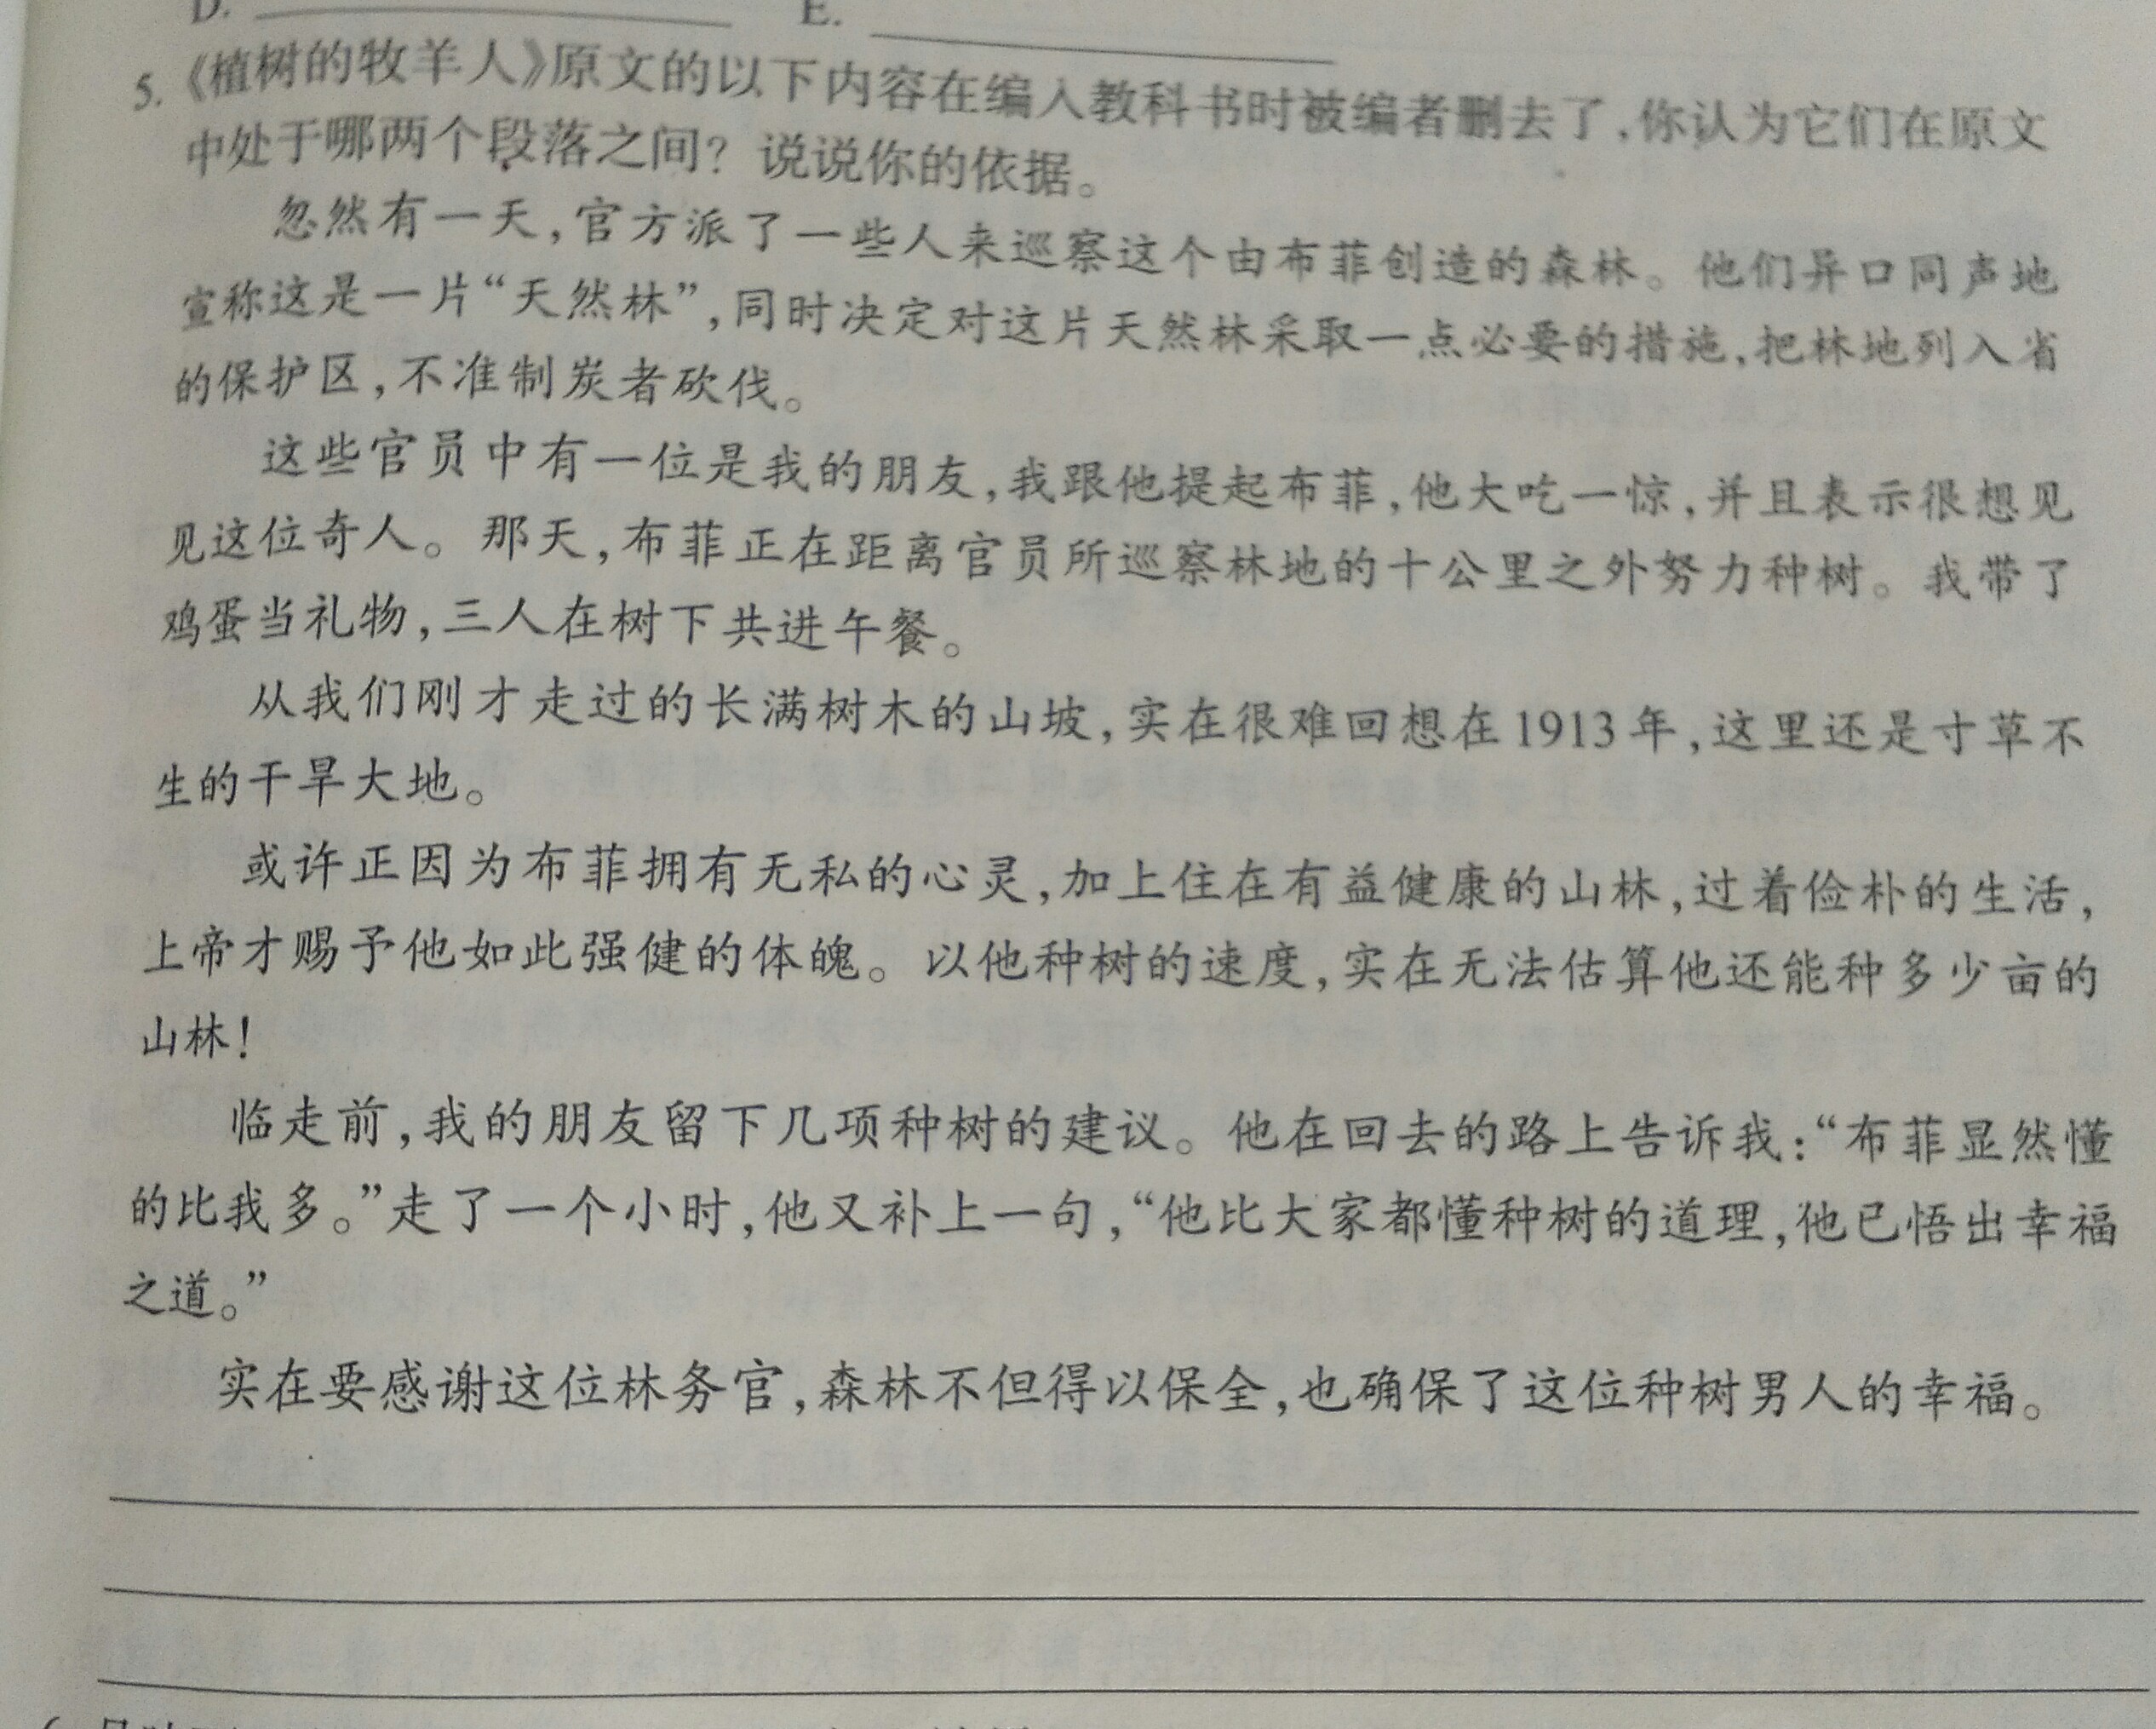 D. E.
5.《植树的牧羊人》原文的以下内容在编入教科书时被编者删去了,你认为它们在原文
中处于哪两个段落之间? 说说你的依据。
忽然有一天,官方派了一些人来巡察这个由布菲创造的森林。他们异口同声地
宣称这是一片“天然林”,同时决定对这片天然林采取一点必要的措施,把林地列入省
的保护区,不准制炭者砍伐。
这些官员中有一位是我的朋友,我跟他提起布菲,他大吃一惊,并且表示很想见
见这位奇人。那天,布菲正在距离官员所巡察林地的十公里之外努力种树。我带了
鸡蛋当礼物,三人在树下共进午餐。
从我们刚才走过的长满树木的山坡,实在很难回想在1913年,这里还是寸草不
生的干旱大地。
或许正因为布菲拥有无私的心灵,加上住在有益健康的山林,过着俭朴的生活,
上帝才赐予他如此强健的体魄。以他种树的速度,实在无法估算他还能种多少亩的
山林!
临走前,我的朋友留下几项种树的建议。他在回去的路上告诉我:“布菲显然懂
的比我多。”走了一个小时,他又补上一句,“他比大家都懂种树的道理,他已悟出幸福
之道。”
实在要感谢这位林务官,森林不但得以保全,也确保了这位种树男人的幸福。